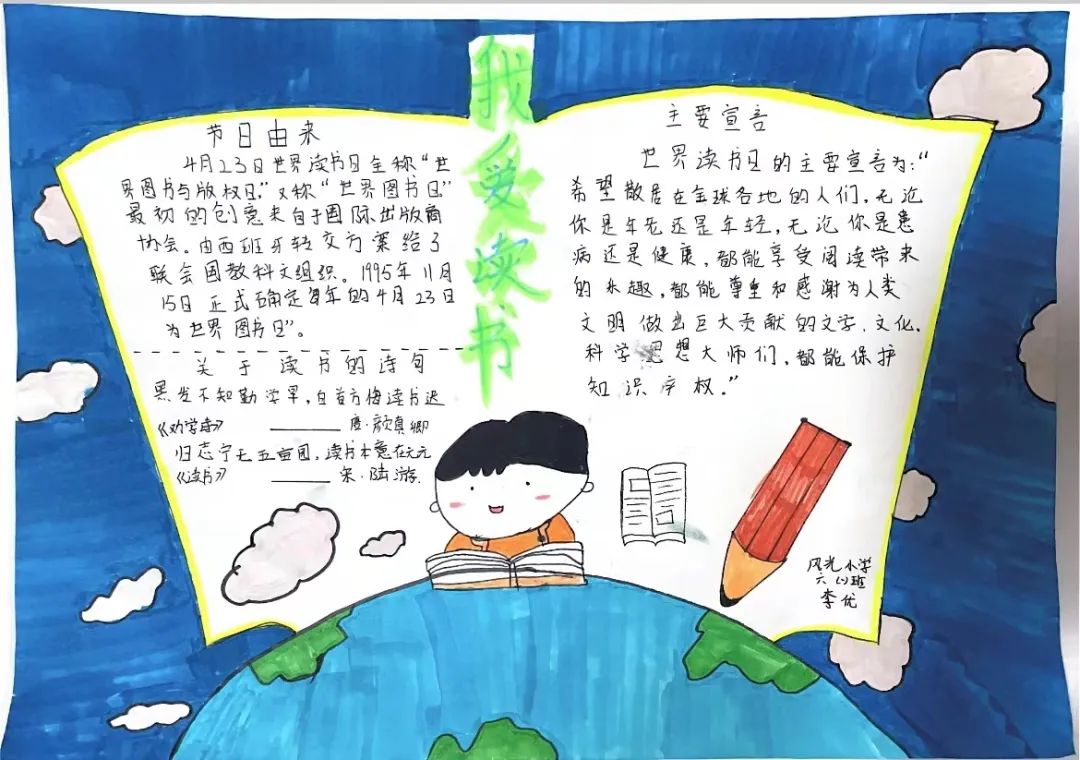 我爱读书
节日由来
4月23日世界读书日全称“世
界图书与版权日,”又称“世界图书日”
最初的创意来自于国际出版商
协会。由西班牙转交方案给了
联合国教科文组织。1995年11月
15日正式确定每年的4月23日
为世界图书日”。
关于读书的诗句
黑发不知勤学早,白首方悔读书迟
《劝学诗》 —— 唐·颜真卿
归志宁无五亩园,读书本意在元元
《读书》 —— 宋·陆游.
主要宣言
世界读书日的主要宣言为:“
希望散居在全球各地的人们,无论
你是年老还是年轻,无论你是患
病还是健康,都能享受阅读带来
的乐趣,都能尊重和感谢为人类
文明做出巨大贡献的文学.文化.
科学思想大师们,都能保护
知识产权。”
风光小学
六(1)班
李优